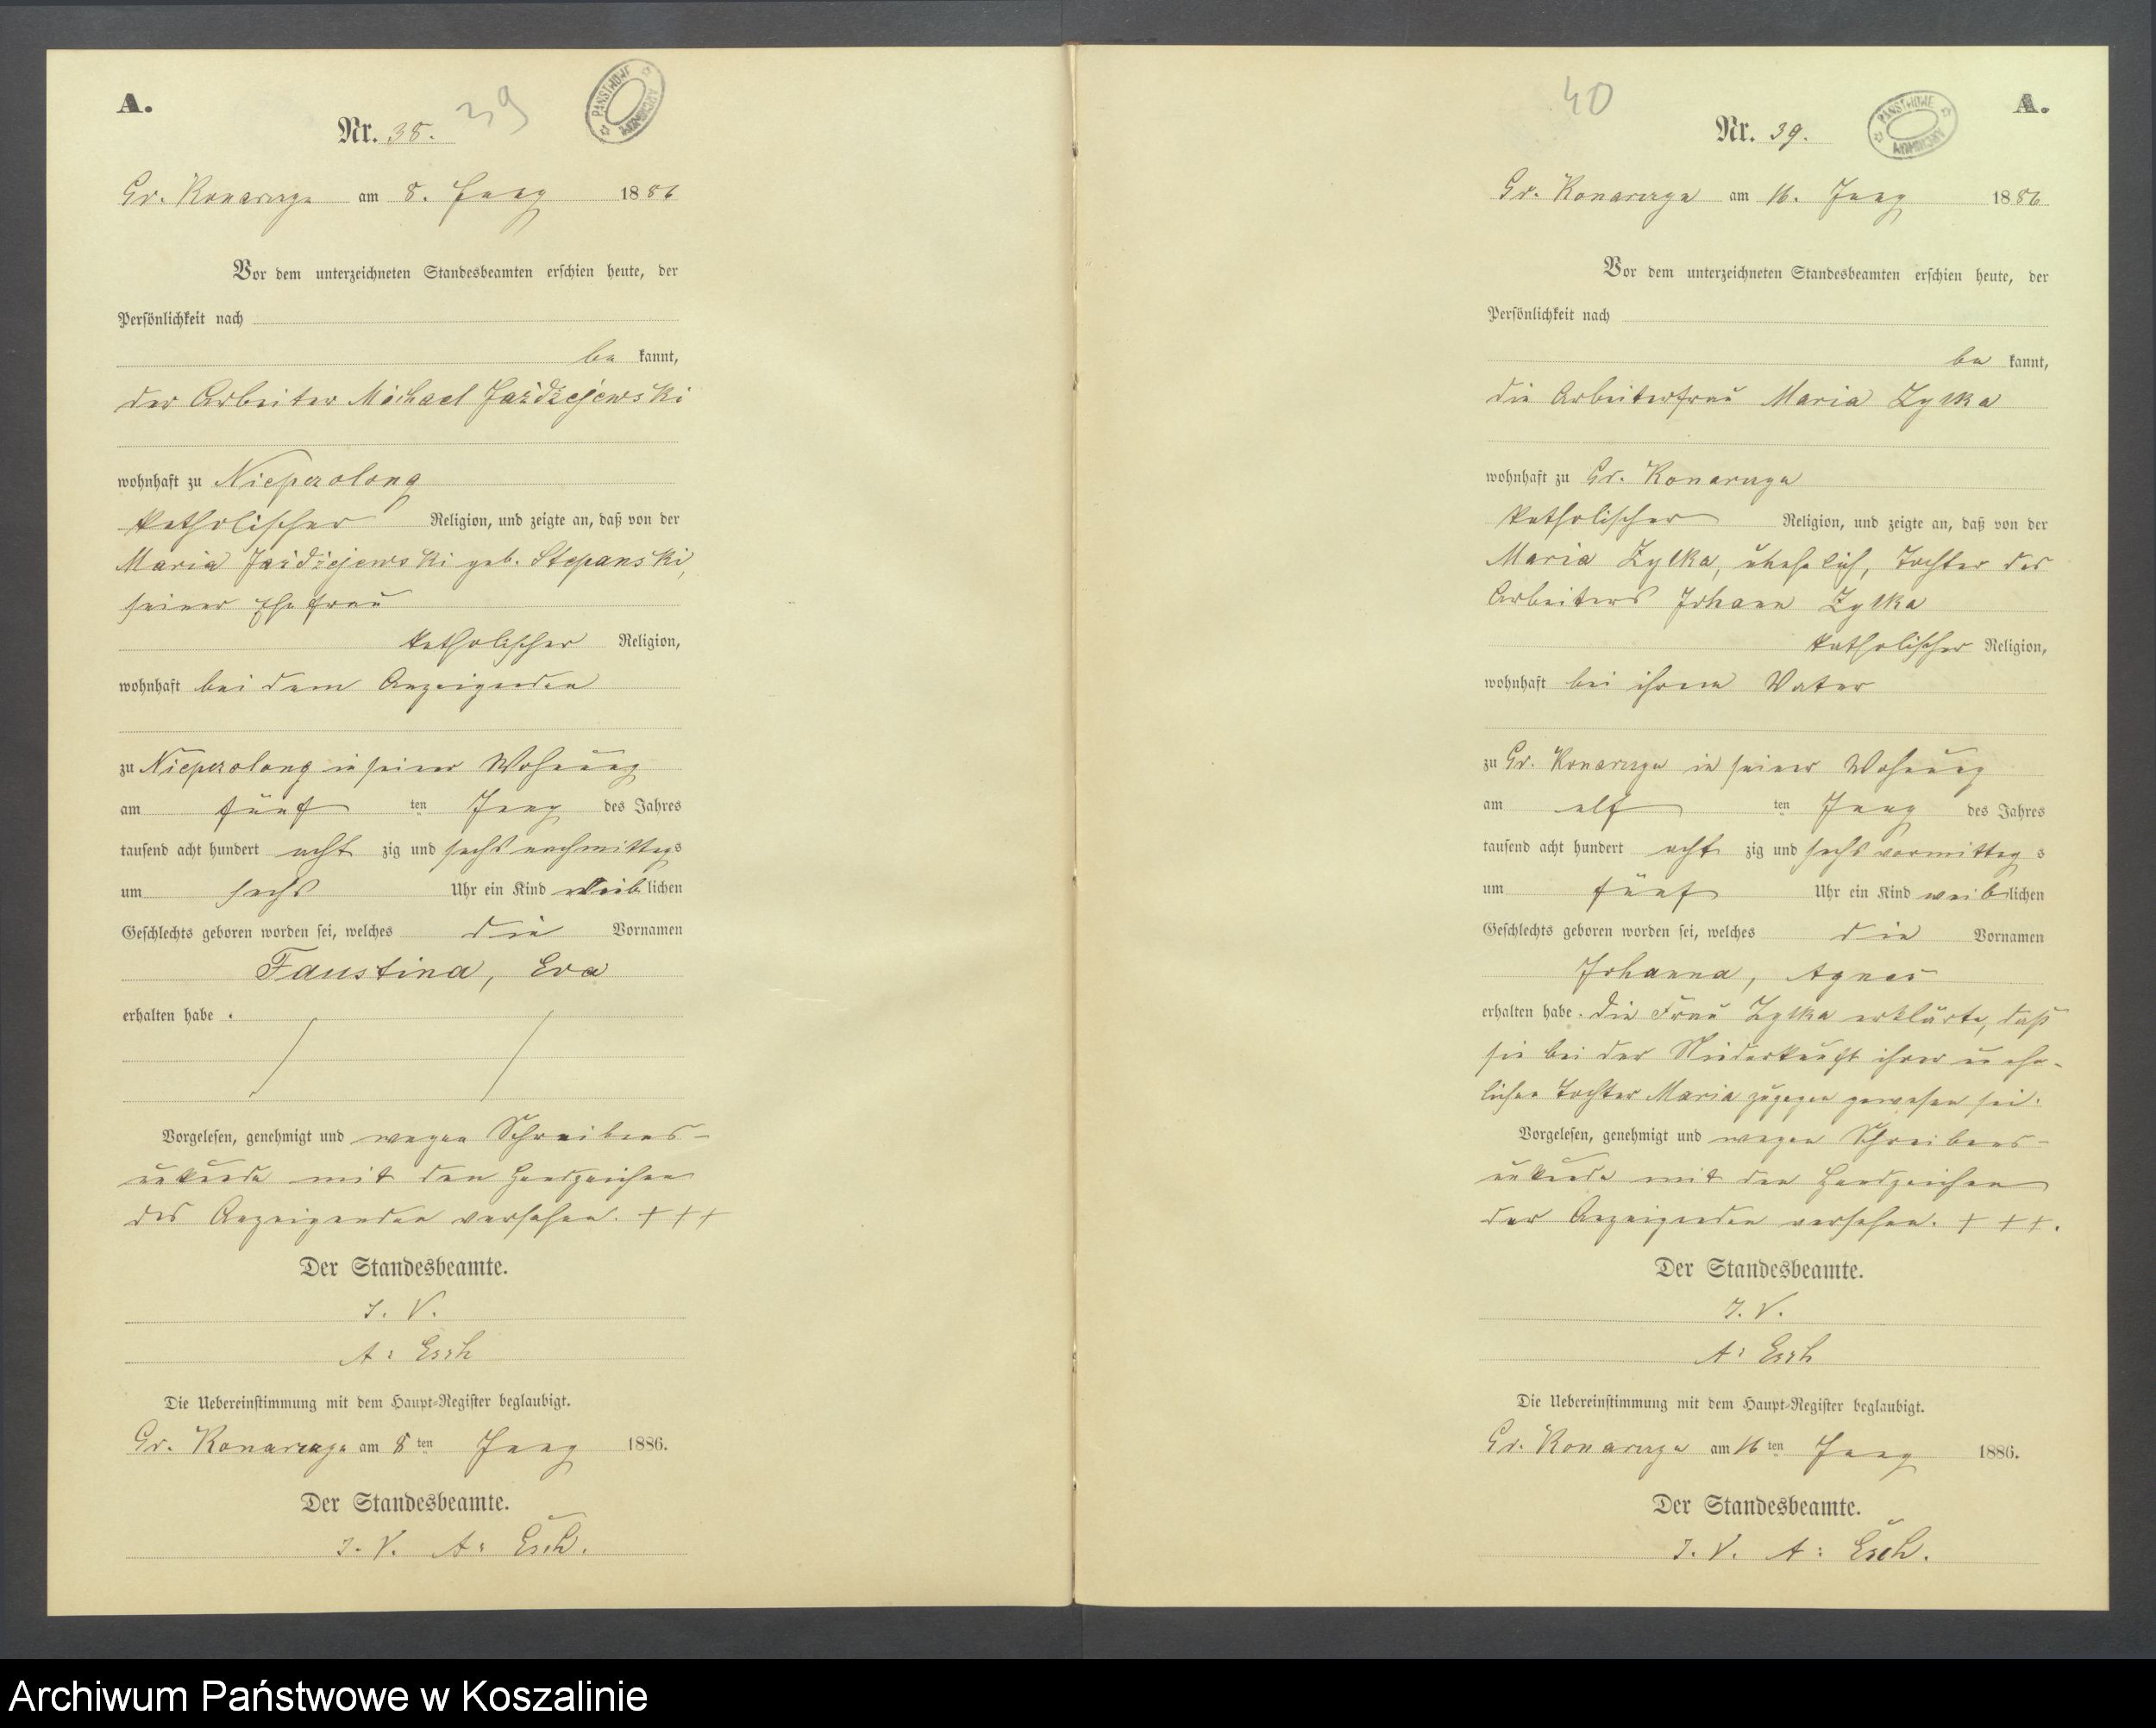 A.
Nr. 38.
39
PAŃSTWOWE ARCHIWUM
Gr. Konarczyn am 8. Juny 1886
Vor dem unterzeichneten Standesbeamten erschien heute, der
Persönlichkeit nach
be kannt,
der Arbeiter Michael Jażdżejewski
wohnhaft zu Niepszolong
katholischer Religion, und zeigte an, daß von der
Maria Jażdżejewski geb. Stepanski,
seiner Ehefrau
katholischer Religion,
wohnhaft bei dem Anzeigenden
zu Niepszolong in seiner Wohnung
am fünf ten Juny des Jahres
tausend acht hundert acht zig und sechs nachmittags
um sechs Uhr ein Kind weiblichen
Geschlechts geboren worden sei, welches die Vornamen
Faustina, Eva
erhalten habe.
Vorgelesen, genehmigt und wegen Schreibens-
unkunde mit den Handzeichen
des Anzeigenden versehen. +++
Der Standesbeamte.
I. V.
A: Esch
Die Uebereinstimmung mit dem Haupt-Register beglaubigt.
Gr. Konarczyn am 8 ten Juny 1886.
Der Standesbeamte.
I. V. A: Esch.
40
A.
Nr. 39.
PAŃSTWOWE ARCHIWUM
Gr. Konarczyn am 16. Juny 1886
Vor dem unterzeichneten Standesbeamten erschien heute, der
Persönlichkeit nach
be kannt,
die Arbeiterfrau Maria Zylka
wohnhaft zu Gr. Konarczyn
katholischer Religion, und zeigte an, daß von der
Maria Zylka, unehelich, Tochter des
Arbeiters Johann Zylka
katholischer Religion,
wohnhaft bei ihrem Vater
zu Gr. Konarczyn in seiner Wohnung
am elf ten Juny des Jahres
tausend acht hundert acht zig und sechs vormittag s
um fünf Uhr ein Kind weiblichen
Geschlechts geboren worden sei, welches die Vornamen
Johanna, Agnes
erhalten habe. Die Frau Zylka erklärte, daß
sie bei der Niederkunft ihrer unehe-
lichen Tochter Maria zugegen gewesen sei.
Vorgelesen, genehmigt und wegen Schreibens-
unkunde mit den Handzeichen
der Anzeigenden versehen. +++.
Der Standesbeamte.
I. V.
A: Esch
Die Uebereinstimmung mit dem Haupt-Register beglaubigt.
Gr. Konarczyn am 16 ten Juny 1886.
Der Standesbeamte.
I. V. A: Esch.
Archiwum Państwowe w Koszalinie